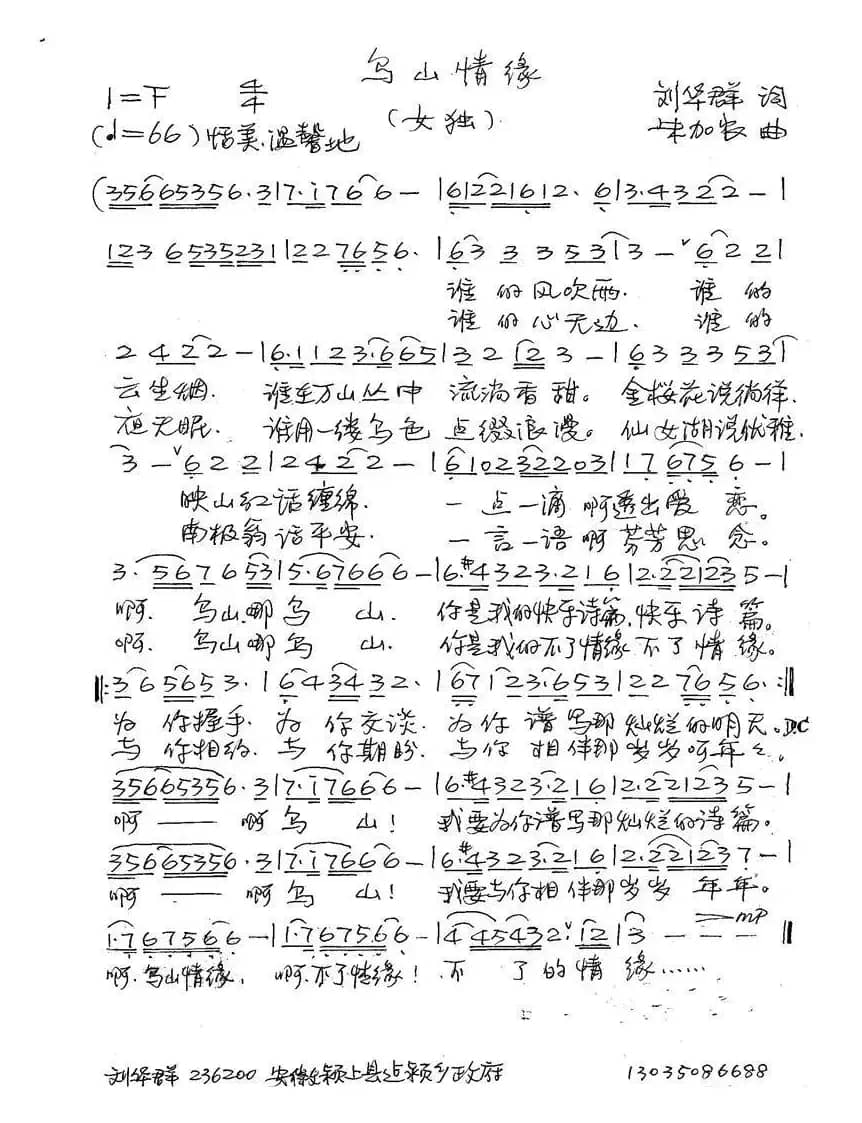 乌山情缘
1=F 4/4
(女独)
刘华群 词
(♩=66) 恬美.温馨地
朱加农 曲
(35665356·3|7·i766—|61221612·6|3·4322—|
123 6535231|227656·|63 3 3531|3—ˇ622|
谁的风吹雨. 谁的
谁的心无边. 谁的
2422—|6·1123·665|32123—|63 3 3531|
云生烟. 谁在万山丛中 流淌香甜。金桜花说徜徉.
夜无眠. 谁用一缕乌色 点缀浪漫。仙女湖说优雅.
3—ˇ622|2422—|6102322203|176756—|
映山红话缠绵. 一点一滴啊透出爱恋。
南极翁话平安. 一言一语啊芬芳思念。
3·567653|5·67666—|6·#4323·216|2·221235—|
啊. 乌山哪乌山. 你是我的快乐诗篇,快乐诗篇。
啊. 乌山哪乌山. 你是我的不了情缘不了情缘。
‖:365653·|643432·|67123·653|227656·:‖
为你握手.为你交谈.为你谱写那灿烂的明天。D.C
与你相约.与你期盼.与你相伴那岁岁呵年々.
35665356·3|7·i7666—|6·#4323·216|2·221235—|
啊—— 啊乌山! 我要为你谱写那灿烂的诗篇。
35665356·3|7·i7666—|6·#4323·216|2·221237—|
啊—— 啊乌山! 我要与你相伴那岁岁年年。
mp
i·767566—|i·7675·66—|4 45432·ˇ12|3———‖
啊.乌山情缘, 啊.不了情缘! 不了的情缘……
刘华群 236200 安徽颍上县 颍乡政府 13035086688